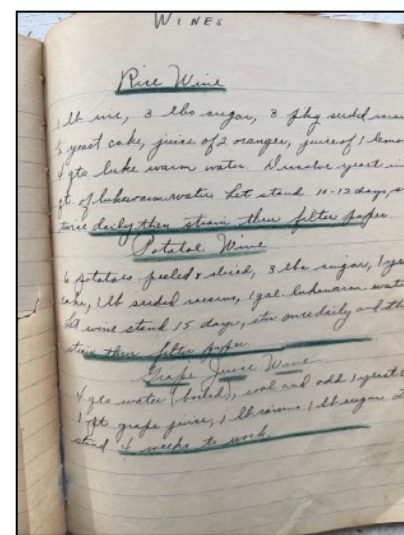 WINES
Rice Wine
1 lb rice, 3 lbs sugar, 3 pkg seeded
½ yeast cake, juice of 2 oranges, juice of 1
4 qts luke warm water. Dissolve yeast in
qt. of lukewarm water Let stand 10-12 days,
twice daily then strain thru filter paper.
Potatoe Wine
6 potatoes peeled & sliced, 3 lbs sugar, 1
cake, 1 lb seeded raisins, 1 gal. lukewarm
Let wine stand 15 days, stir once daily and
strain thru filter paper.
Grape Juice Wine
4 qts water (boiled), cool and add 1 yeast
1 pt grape juice, 1 lb raisins 1 lb sugar
stand 4 weeks to work.